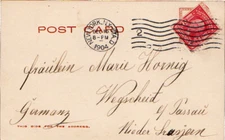 POST CARD
NEW YORK, N.Y.
6-PM
1904
2
Fräulein Marie Hornig
Wegscheid
Germany
b/ Passau
Nieder Bayern
THIS SIDE FOR THE ADDRESS.